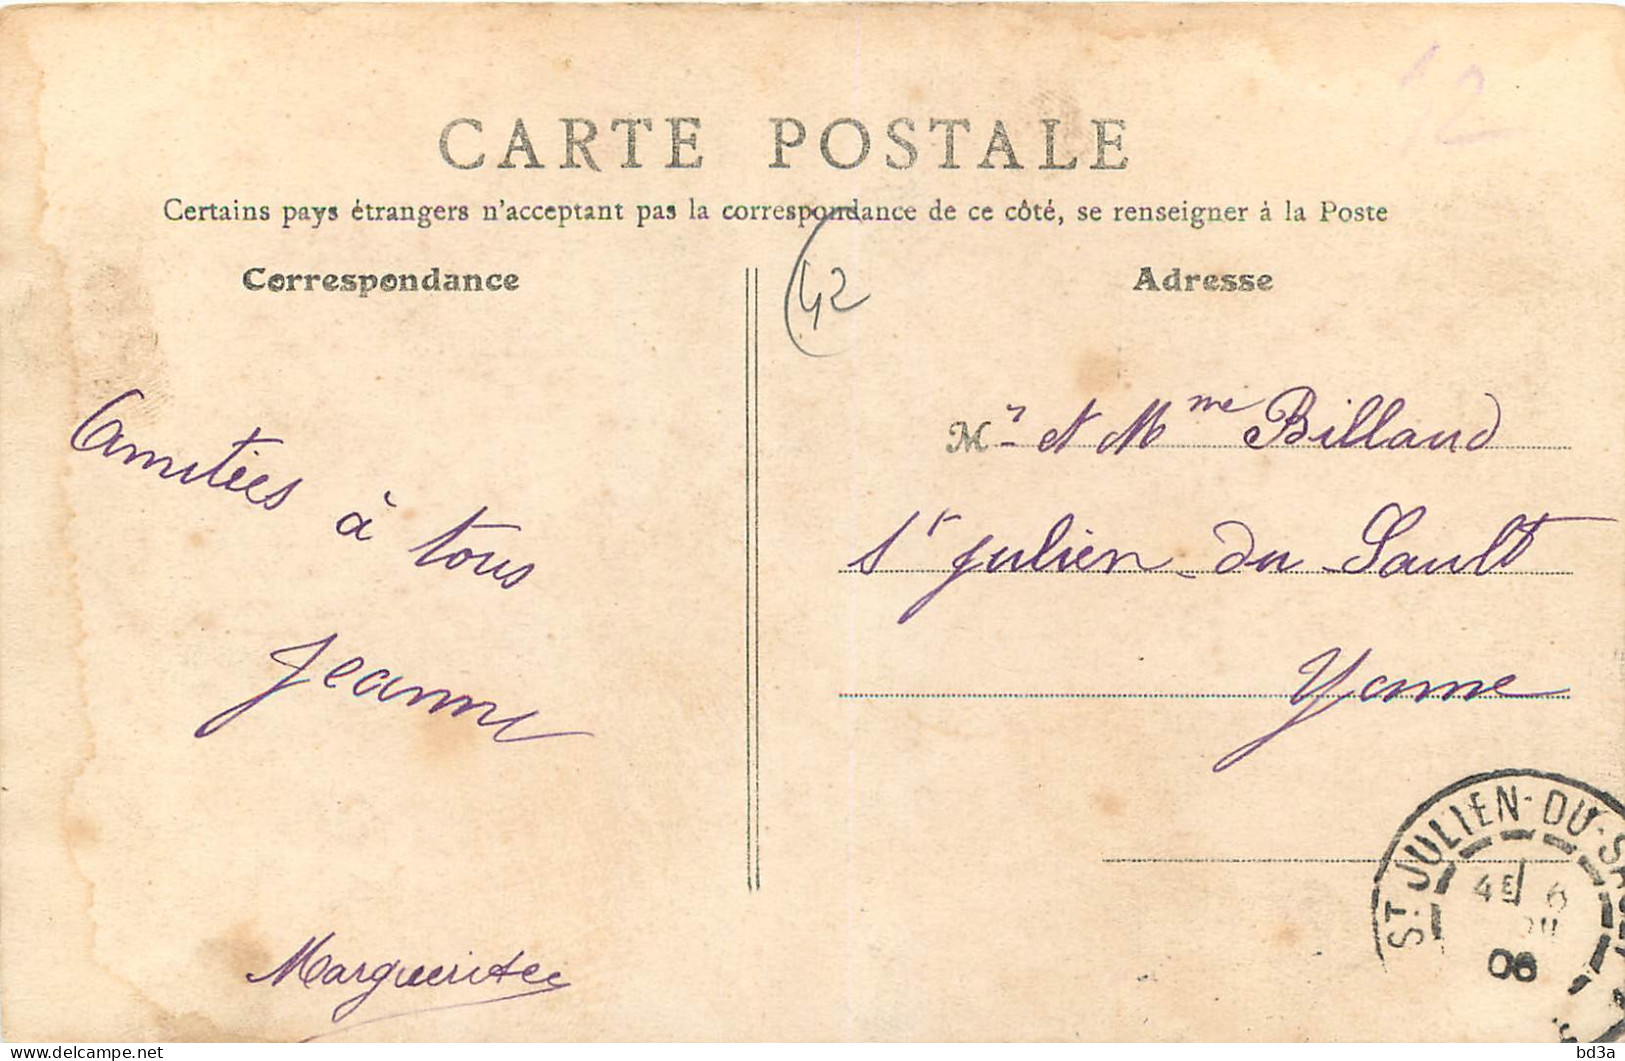 42
CARTE POSTALE
Certains pays étrangers n'acceptant pas la correspondance de ce côté, se renseigner à la Poste
Correspondance
Adresse
(42
Amitiés à tous
Jeanne
Marguerite
Mr et Mme Billaud
St Julien du Sault
Yonne
ST JULIEN-DU-SAULT
4E 6
06
bd3a